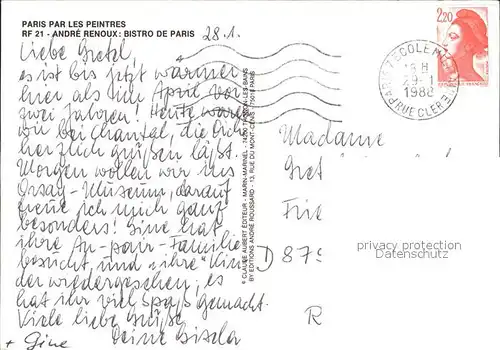 PARIS PAR LES PEINTRES
RF 21 - ANDRÉ RENOUX: BISTRO DE PARIS
28.1.
Liebe Gretel,
es ist bis jetzt wärmer
hier als im April vor
zwei Jahren! Heute waren
wir bei Chantal, die Dich
herzlich grüßen läßt.
Morgen wollen wir ins
Orsay-Museum, darauf
freue ich mich ganz
besonders! Gine hat
ihre Au-pair-Familie
besucht und "ihre" Kin
der wiedergesehen, es
hat ihr viel Spaß gemacht.
Viele liebe Grüße
Deine Gisela
+ Gine
© CLAUDE AUBERT ÉDITEUR - MARIN-MARINEL - 74200 THONON-LES-BAINS
BY EDITIONS ANDRÉ ROUSSARD - 13, RUE DU MONT-CENIS - 75018 PARIS
2,20
PARIS 7 ECOLE
RUE CLER
H
29-1
1988
Madame
Gret
Frie
D 875
R
privacy protection
Datenschutz